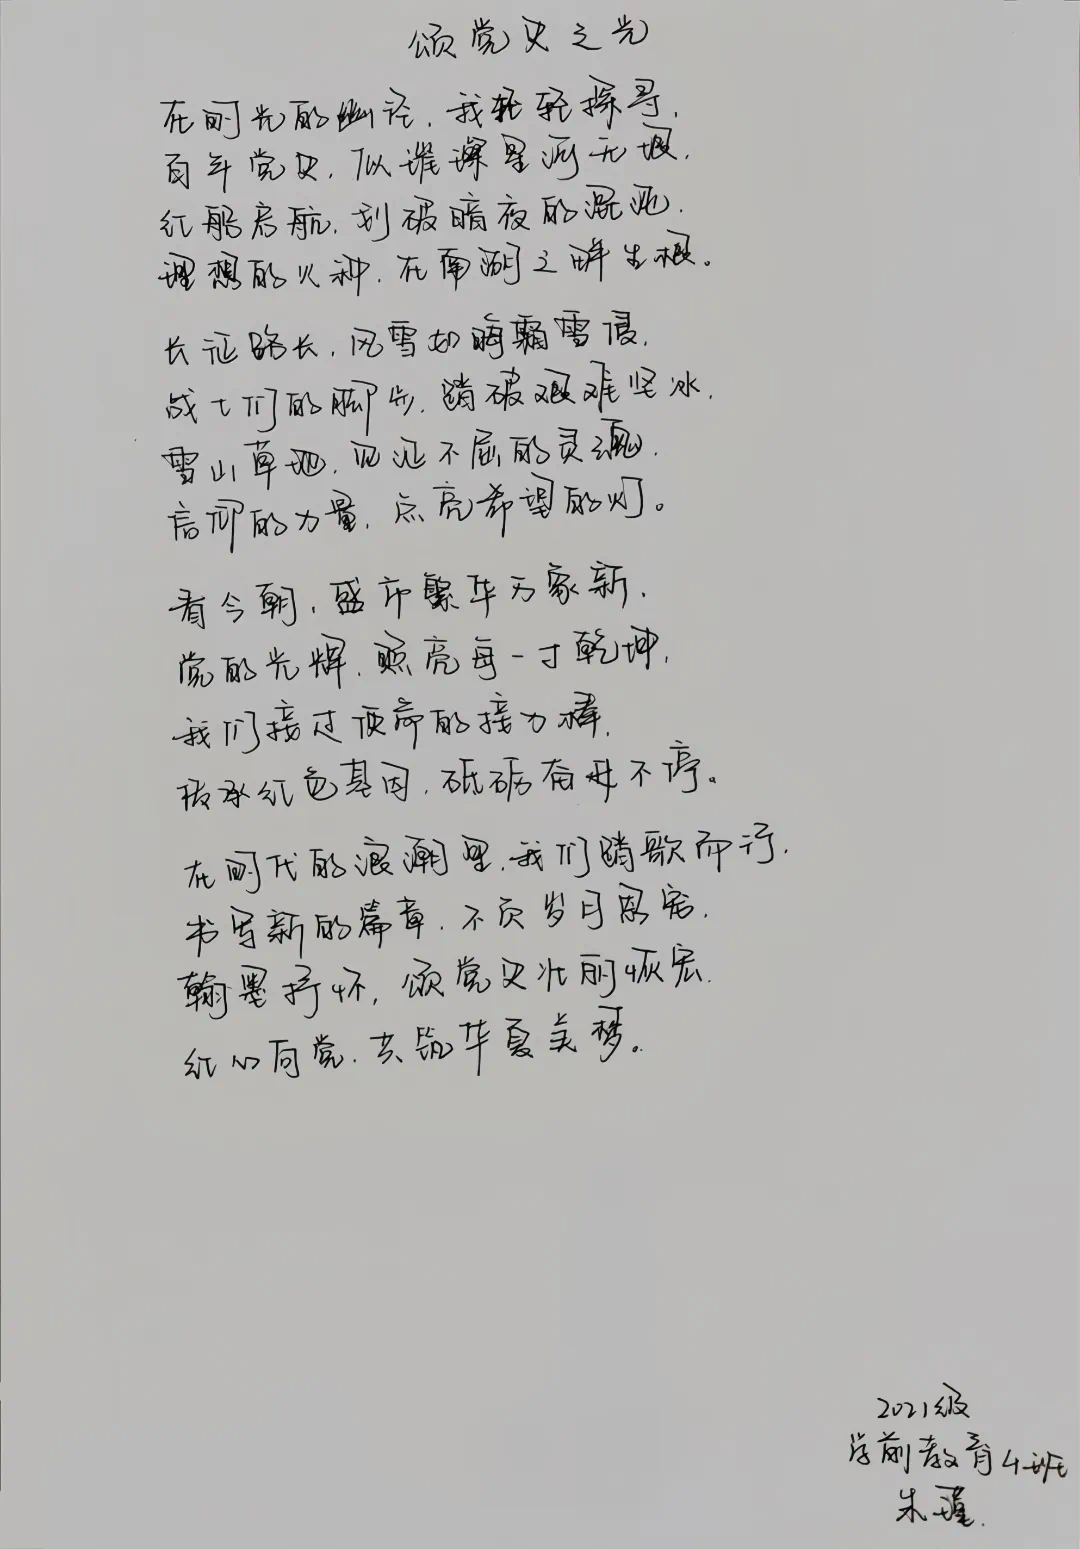 颂党史之光
在时光的幽径，我轻轻探寻，
百年党史，似璀璨星河无垠，
红船启航，划破暗夜的混沌，
理想的火种，在南湖之畔生根。
长征路长，风雪如晦霜雪侵，
战士们的脚步，踏破艰难坚冰，
雪山草地，见证不屈的灵魂，
信仰的力量，点亮希望的灯。
看今朝，盛市繁华万象新，
党的光辉，照亮每一寸乾坤，
我们接过使命的接力棒，
传承红色基因，砥砺奋进不停。
在时代的浪潮里，我们踏歌而行，
书写新的篇章，不负岁月
翰墨抒怀，颂党史壮丽恢宏，
红心向党，共筑华夏美梦。
2021级
学前教育4班
朱瑾